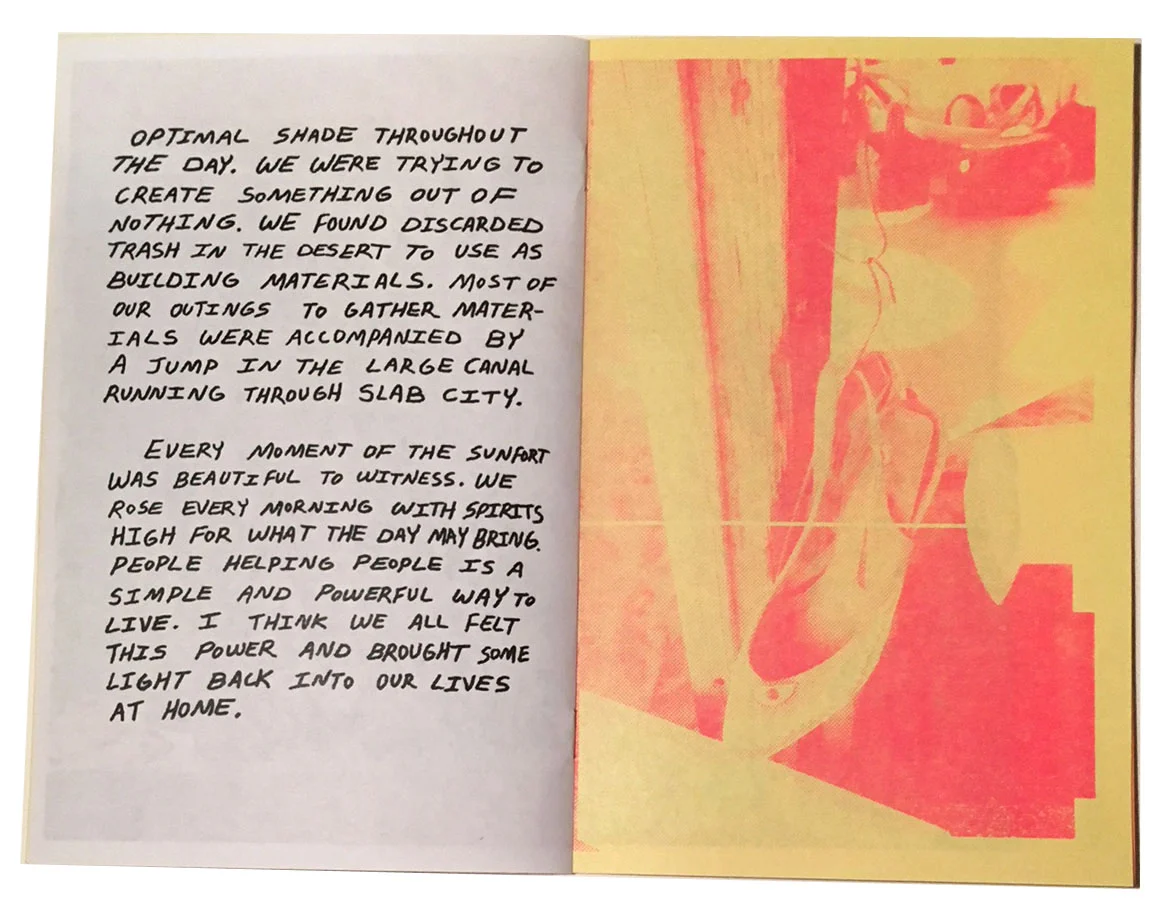 OPTIMAL SHADE THROUGHOUT
THE DAY. WE WERE TRYING TO
CREATE SOMETHING OUT OF
NOTHING. WE FOUND DISCARDED
TRASH IN THE DESERT TO USE AS
BUILDING MATERIALS. MOST OF
OUR OUTINGS TO GATHER MATER-
IALS WERE ACCOMPANIED BY
A JUMP IN THE LARGE CANAL
RUNNING THROUGH SLAB CITY.
EVERY MOMENT OF THE SUNFORT
WAS BEAUTIFUL TO WITNESS. WE
ROSE EVERY MORNING WITH SPIRITS
HIGH FOR WHAT THE DAY MAY BRING.
PEOPLE HELPING PEOPLE IS A
SIMPLE AND POWERFUL WAY TO
LIVE. I THINK WE ALL FELT
THIS POWER AND BROUGHT SOME
LIGHT BACK INTO OUR LIVES
AT HOME.